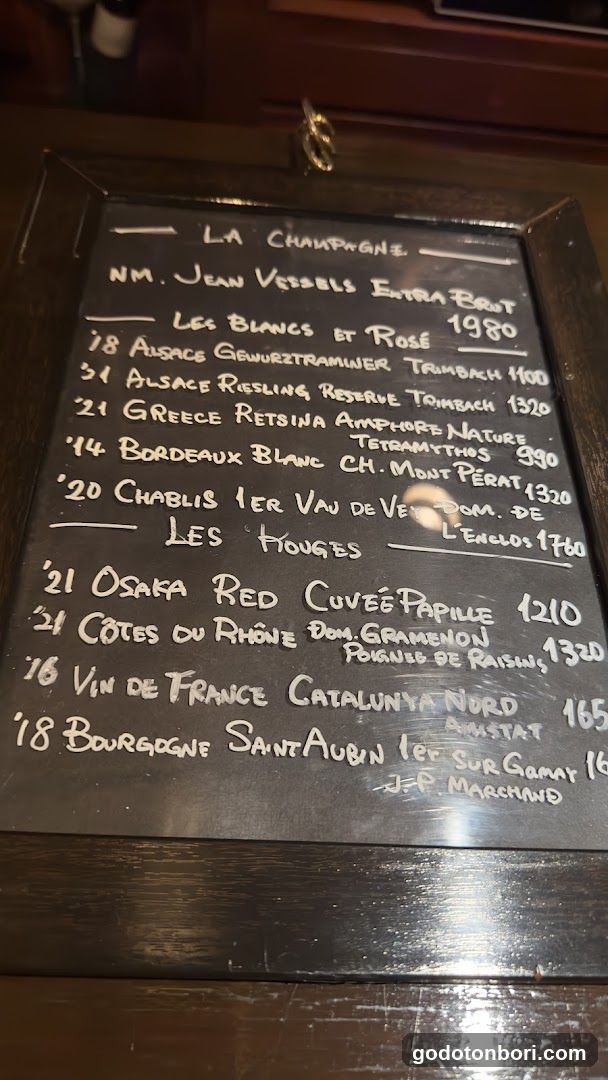 LA CHAMPAGNE
NM. JEAN VESSELS EXTRA BRUT
1980
LES BLANCS ET ROSÉ
'18 ALSACE GEWURZTRAMINER TRIMBACH 1100
'21 ALSACE RIESLING RESERVE TRIMBACH 1320
'21 GREECE RETSINA AMPHORE NATURE
TETRAMYTHOS 990
'14 BORDEAUX BLANC CH. MONT PÉRAT 1320
'20 CHABLIS 1ER VAU DE VE DOM. DE
L'ENCLOS 1760
LES ROUGES
'21 OSAKA RED CUVÉE PAPILLE 1210
'21 CÔTES DU RHÔNE DOM. GRAMENON
POIGNEE DE RAISINS 1320
'16 VIN DE FRANCE CATALUNYA NORD 165
AMISTAT
'18 BOURGOGNE SAINT AUBIN 1er SUR GAMAY 16
J.P. MARCHAND
godotonbori.com